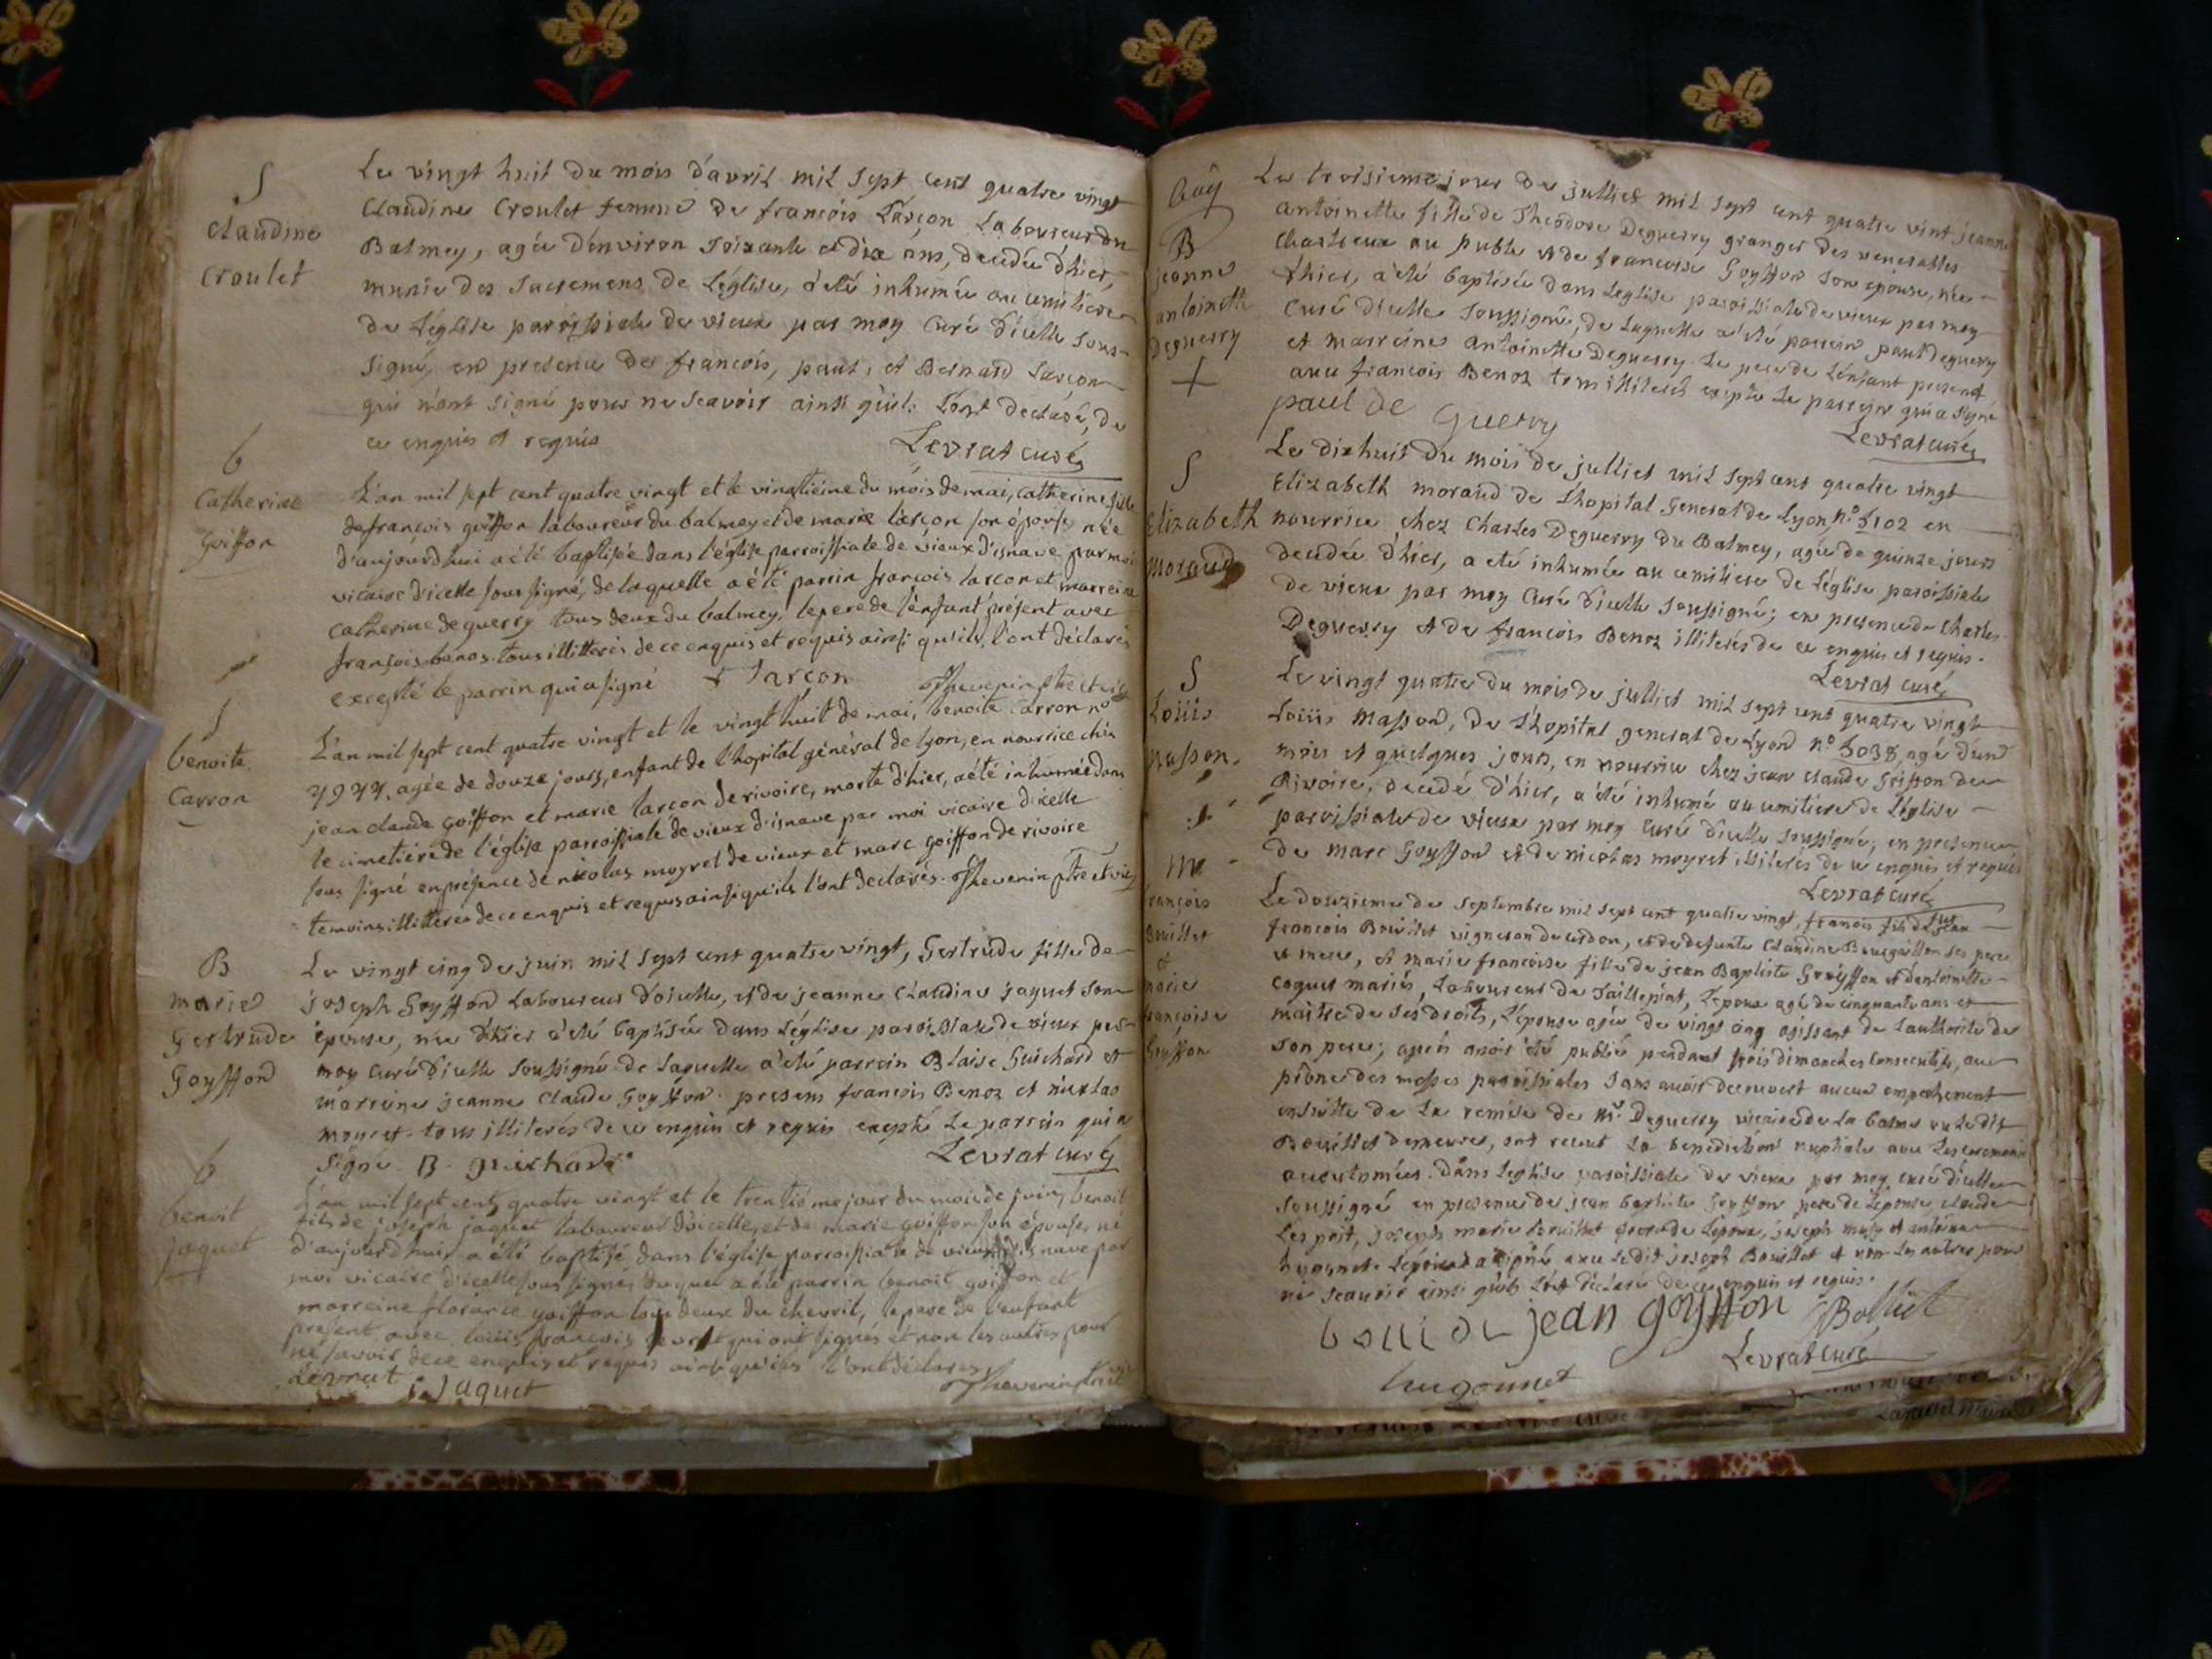 S
Claudine
Croulet
Le vingt huit du mois d'avril mil sept cent quatre vingt
Claudine Croulet femme de francois Larçon Laboureur du
Balmey, agée d'environ soixante et dix ans, decedée d'hier,
munie des sacremens de L'église, a été inhumée au cemitiere
de L'église paroissiale de vieux par moy Curé d'icelle sous-
signé, en presence de francois, paul, et Bernard Larçon
qui n'ont signé pour ne scavoir ainsi qu'ils L'ont declaré, de
ce enquis et requis
Levrat curé
b
Catherine
Goiffon
L'an mil sept cent quatre vingt et le vingtieme du mois de mai, catherine fille
de françois goiffon laboureur du balmey et de marie larçon son épouse, née
d'aujourd'hui a été baptisée dans l'église parroissiale de vieux d'isnave par moi
vicaire d'icelle soussigné, de laquelle a été parrin françois larcon et marreine
catherine deguerry tous deux du balmey. le pere de l'enfant présent avec
françois benos. tous illitterés de ce enquis et requis ainsi qu'ils l'ont déclarés
excepté le parrin qui a signé f Larçon
Thevenin ptre et vic
S
benoite
Carron
L'an mil sept cent quatre vingt et le vingt huit de mai, benoite Carron no
agée de douze jours, enfant de l'hopital général de lyon, en nourrice chés
jean claude goiffon et marie larçon de rivoire, morte d'hier, a été inhumée dans
le cimetiere de l'église parroissiale de vieux d'isnave par moi vicaire d'icelle
sous signé en présence de nicolas moyret de vieux et marc goiffon de rivoire
temoins illitterés de ce enquis et requis ainsi qu'ils l'ont declarés. Thevenin ptre et vic
B
marie
Gertrude
Goyffond
Le vingt cinq de juin mil sept cent quatre vingt, Gertrude fille de
joseph Goyffond Laboureur d'icelle, et de jeanne Claudine jaquet son
épouse, née d'hier a été baptisée dans L'église paroissiale de vieux par
moy curé d'icelle soussigné de Laquelle a été parrein Blaise Guichard et
marreine jeanne Claude Goyffon. presens francois Benoz et nicolas
moyret. tous illiterés de ce enquis et requis excepté Le parrein qui a
signé B. guichard
Levrat curé
b
benoit
jaquet
L'an mil sept cent quatre vingt et le trentieme jour du mois de juin, benoit
fils de joseph jaquet laboureur d'icelle, et de marie goiffon son épouse, né
d'aujourd'hui a été baptisé dans l'église parroissiale de vieux d'isnave par
moi vicaire d'icelle sous signé, duquel a été parrin benoit goiffon et
marreine florance goiffon tous deux du chevril, le pere de l'enfant
present avec louis francois levrat qui ont signés et non les autres pour
ne savoir de ce enquis et requis ainsi qu'ils l'ont declarés
Levrat j Jaquet
Thevenin ptre et vic
B
jeanne
antoinette
Deguerry
Le troisieme jour de julliet mil sept cent quatre vint jeanne
antoinette fille de Theodore Deguerry granger des venerables
Chartreux au puble et de francoise Goyffon son épouse, née
d'hier, a été baptisée dans L'eglise paroissiale de vieux par moy
Curé d'icelle soussigné, de Laquelle a été parrein paul deguerry
et marreine antoinette Deguerry. Le pere de L'enfant present
avec francois Benoz tous illiterés excepté Le parrein qui a signé
paul de Guerry
Levrat curé
S
Elizabeth
Moraud
Le dixhuit du mois de julliet mil sept cent quatre vingt
Elizabeth moraud de L'hopital General de Lyon n° 5102 en
nourrice chez Charles Deguerry du Balmey, agée de quinze jours
decedée d'hier, a eté inhumée au cemitiere de L'église paroissiale
de vieux par moy Curé d'icelle soussigné; en presence de Charles
Deguerry et de francois Benoz illiterés de ce enquis et requis.
Levrat curé
S
Loüis
Masson
Le vingt quatre du mois de julliet mil sept cent quatre vingt
Loüis Masson, de L'hopital general de Lyon n° 5038, agé d'un
mois et quelques jours, en nourrice chez jean claude Griffon de
Rivoire, decedé d'hier, a été inhumé au cemitiere de L'église
paroissiale de vieux par moy Curé d'icelle soussigné, en presence
de marc Goyffon et de nicolas moyret illiterés de ce enquis et requis
Levrat curé
M
françois
Bouillet
et
marie
françoise
Goyffon
Le douzieme de septembre mil sept cent quatre vingt, francois fils de feu
francois Bouillet vigneron de cerdon, et de defunte Claudine ses pere
et mere, et marie francoise fille de jean Baptiste Goyffon et d'antoinette
coquet mariés, Laboureur de Tailleplat, L'epoux agé de cinquante ans et
maitre de ses droits, L'épouse agée de vingt cinq agissant de L'authorité de
son pere; après avoir été publié pendant trois dimanches consecutifs, aux
prônes des messes paroissiales sans avoir decouvert aucun empechement
ensuitte de La remise de Mr. Deguerry vicaire de La balme ou Ledit
Bouillet demeure, ont receut La benediction nuptiale avec Les ceremonies
accoutumées. dans L'eglise paroissiale de vieux par moy curé d'icelle
soussigné en presence de jean baptiste Goyffon pere de L'épouse, claude
joseph marie Bouillet frere de L'époux, joseph et antoine
hugonet. L'époux a signé avec Ledit joseph Bouillet et non Les autres pour
ne scavoir ainsi qu'ils L'ont declaré de ce enquis et requis.
jean goyffon Bolliet
Levrat curé
hugonnet